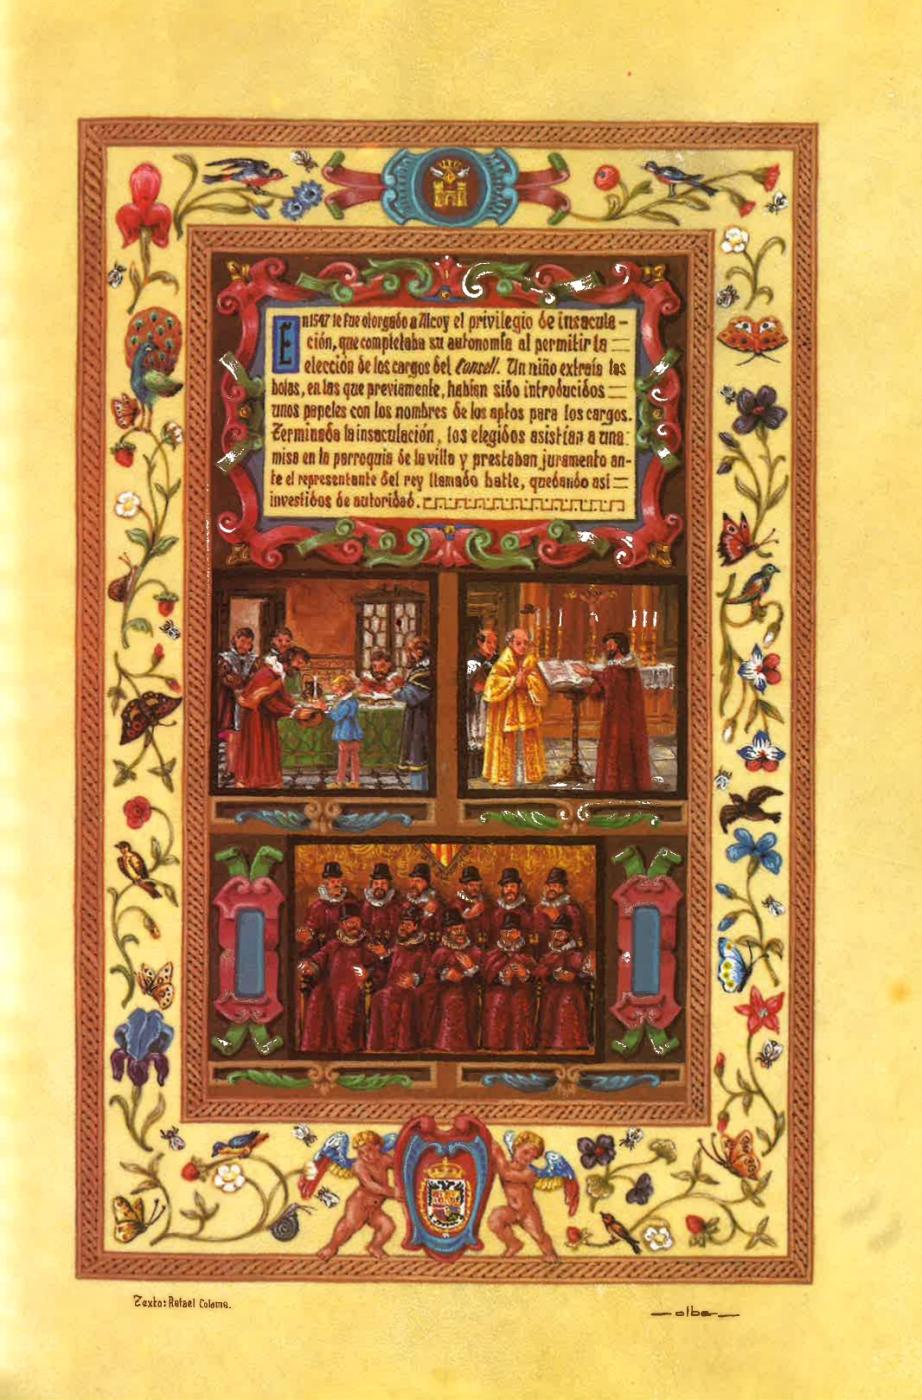 En 1547 le fue otorgado a Alcoy el privilegio de insacula-
ción, que completaba su autonomía al permitir la
elección de los cargos del Consell. Un niño extraía las
bolas, en las que previamente, habían sido introducidos
unos papeles con los nombres de los aptos para los cargos.
Terminada la insaculación, los elegidos asistían a una
misa en la parroquia de la villa y prestaban juramento an-
te el representante del rey llamado batle, quedando así
investidos de autoridad.
Texto: Rafael Coloma.
olba